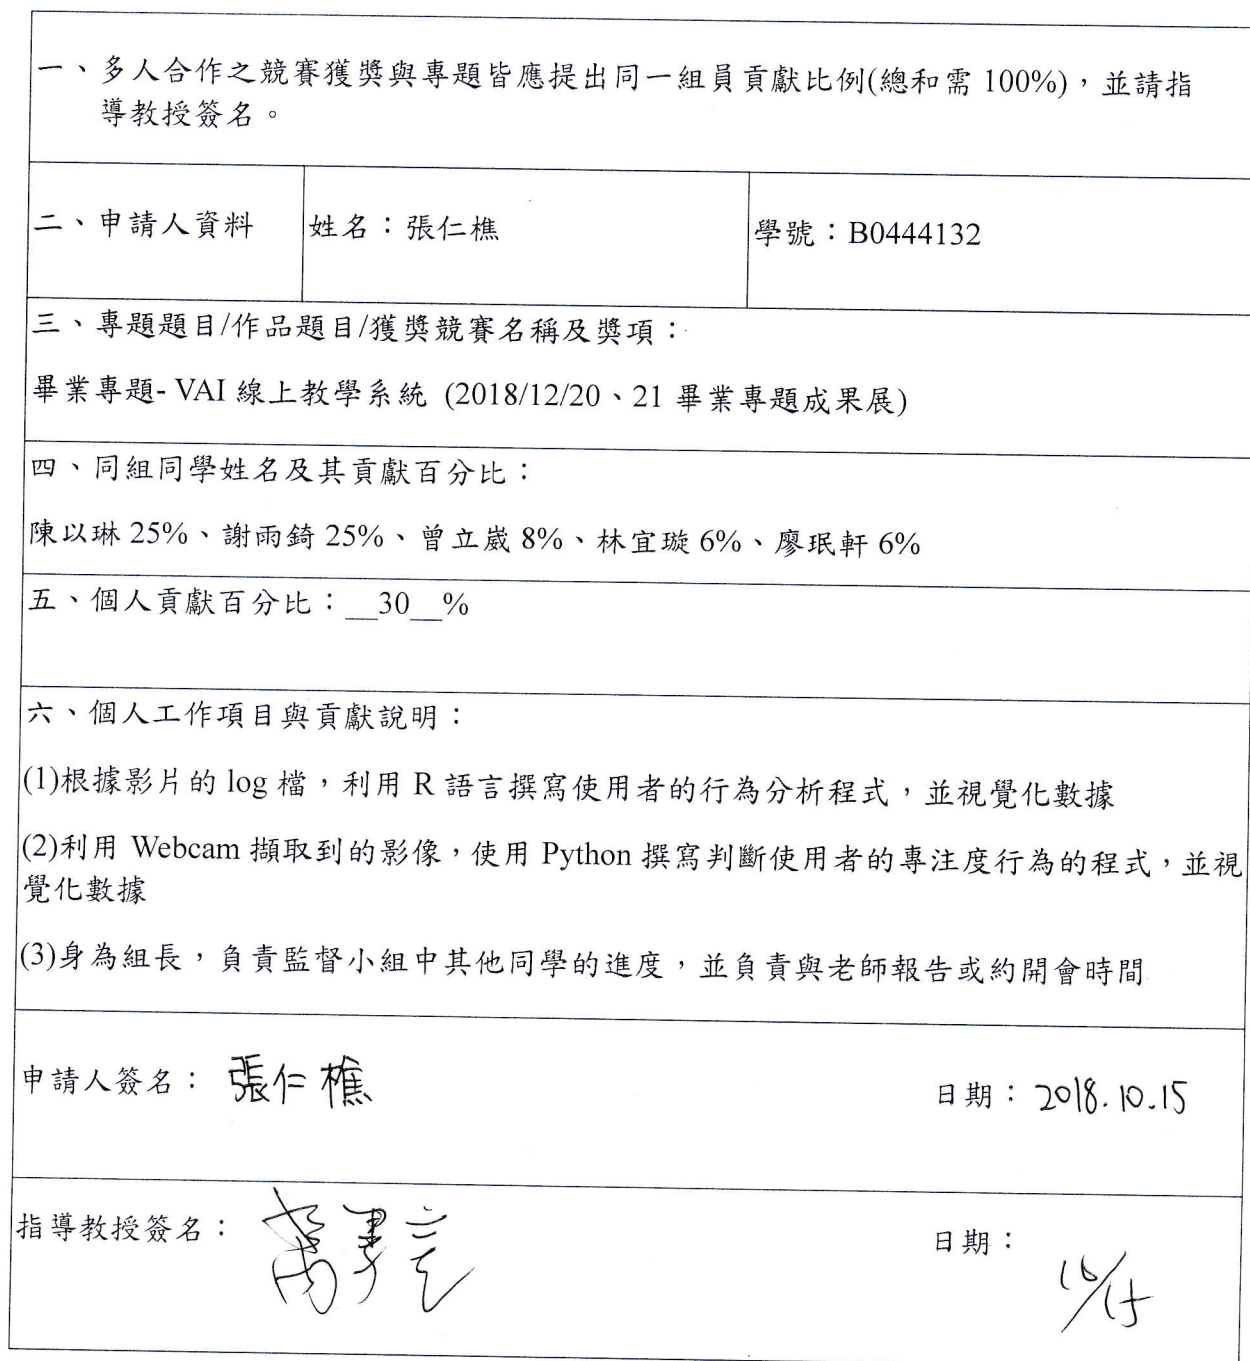 一、多人合作之競賽獲獎與專題皆應提出同一組員貢獻比例(總和需 100%)，並請指
導教授簽名。
二、申請人資料
姓名：張仁樵
學號：B0444132
三、專題題目/作品題目/獲獎競賽名稱及獎項：
畢業專題- VAI 線上教學系統 (2018/12/20、21 畢業專題成果展)
四、同組同學姓名及其貢獻百分比：
陳以琳 25%、謝雨錡 25%、曾立崴 8%、林宜璇 6%、廖珉軒 6%
五、個人貢獻百分比：__30__%
六、個人工作項目與貢獻說明：
(1)根據影片的 log 檔，利用 R 語言撰寫使用者的行為分析程式，並視覺化數據
(2)利用 Webcam 擷取到的影像，使用 Python 撰寫判斷使用者的專注度行為的程式，並視
覺化數據
(3)身為組長，負責監督小組中其他同學的進度，並負責與老師報告或約開會時間
申請人簽名：張仁樵
日期：2018.10.15
指導教授簽名：
日期：10/15